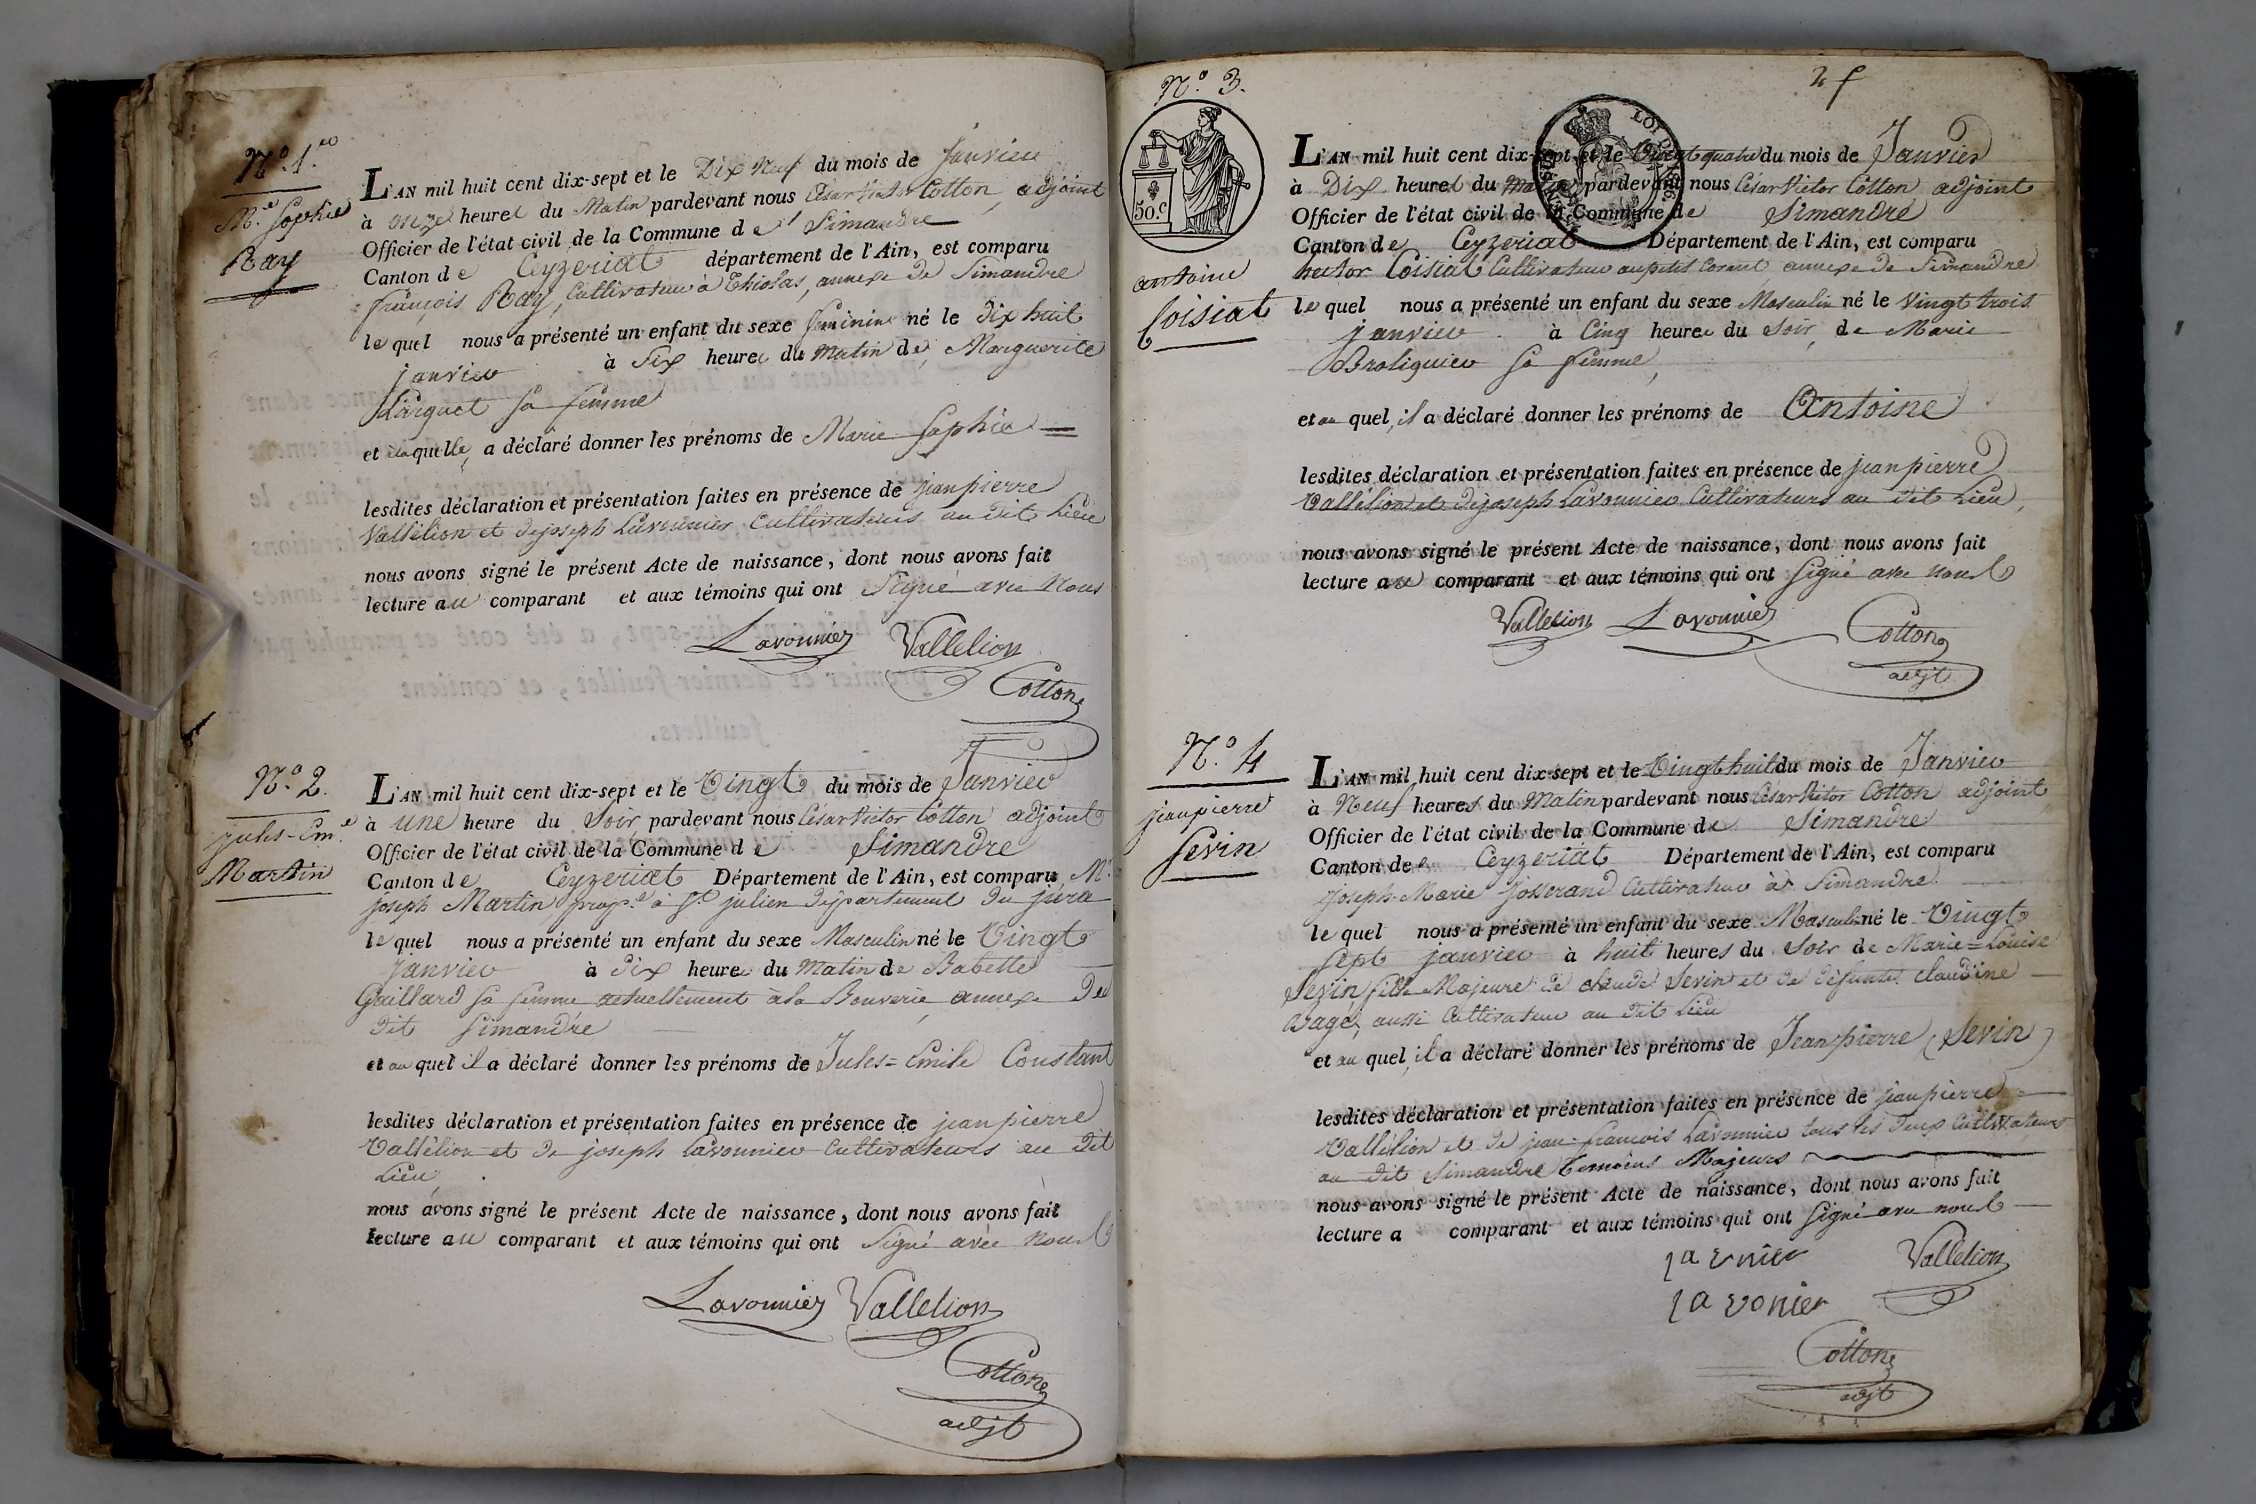 N.º 1.er
M.e Sophie
Ray
L'AN mil huit cent dix-sept et le Dix Neuf du mois de Janvier
à onze heures du Matin pardevant nous César Victor Cotton, adjoint
Officier de l'état civil de la Commune de Simandre
Canton de Ceyzeriat département de l'Ain, est comparu
françois Ray, Cultivateur à Thiolas, annexe de Simandre
lequel nous a présenté un enfant du sexe feminine né le dix huit
janvier à Six heures du matin de Marguerite
Larguet sa femme
et laquelle, a déclaré donner les prénoms de Marie Sophie
lesdites déclaration et présentation faites en présence de jean pierre
Vallélion et de joseph Lavounier Cultivateurs au dit Lieu
nous avons signé le présent Acte de naissance, dont nous avons fait
lecture au comparant et aux témoins qui ont Signé avec Nous
Lavounier Vallelion
Cotton
N.º 2.
jules-Em.e
Martin
L'AN mil huit cent dix-sept et le Vingt du mois de Janvier
à une heure du Soir pardevant nous César Victor Cotton adjoint
Officier de l'état civil de la Commune de Simandre
Canton de Ceyzeriat Département de l'Ain, est comparu M.r
joseph Martin prop.re à S.t julien Département du jura
lequel nous a présenté un enfant du sexe Masculin né le Vingt
janvier à dix heures du Matin de Babette
Gaillard sa femme actuellement à la Bouverie, annexe de
dit Simandre
et au quel il a déclaré donner les prénoms de Jules=Emile Constant
lesdites déclaration et présentation faites en présence de jean pierre
Vallélion et de joseph Lavounier Cultivateurs au dit
Lieu
nous avons signé le présent Acte de naissance, dont nous avons fait
lecture au comparant et aux témoins qui ont Signé avec Nous
Lavounier Vallelion
Cotton
adjt
N.º 3.
2 f
50.C
LOI DE 1816.
antoine
Loisiat
L'AN mil huit cent dix-sept et le Vingt quatre du mois de Janvier
à Dix heures du Matin pardevant nous César Victor Cotton adjoint
Officier de l'état civil de la Commune de Simandre
Canton de Ceyzeriat Département de l'Ain, est comparu
hector Loisiat Cultivateur au petit Corent annexe de Simandre
lequel nous a présenté un enfant du sexe Masculin né le Vingt trois
janvier à Cinq heures du Soir, de Marie
Broliquier sa femme,
et au quel, il a déclaré donner les prénoms de Antoine
lesdites déclaration et présentation faites en présence de jean pierre
Vallélion et de joseph Lavounier Cultivateurs au dit Lieu,
nous avons signé le présent Acte de naissance, dont nous avons fait
lecture au comparant et aux témoins qui ont signé avec nous
Vallelion Lavounier Cotton
adjt
N.º 4
jean pierre
Sevin
L'AN mil huit cent dix-sept et le Vingt huit du mois de Janvier
à Neuf heures du Matin pardevant nous César Victor Cotton adjoint
Officier de l'état civil de la Commune de Simandre
Canton de Ceyzeriat Département de l'Ain, est comparu
joseph-Marie josserand Cultivateur à Simandre
lequel nous a présenté un enfant du sexe Masculin né le Vingt
sept janvier à huit heures du Soir de Marie=Louise
Sevin, fille Majeure de claude Sevin et de défunte Claudine
aussi Cultivateur au dit Lieu
et au quel, il a déclaré donner les prénoms de Jean pierre (Sevin)
lesdites déclaration et présentation faites en présence de jean pierre
Vallélion et de jean-françois Lavounier tous les deux Cultivateurs
au dit Simandre témoins Majeurs
nous avons signé le présent Acte de naissance, dont nous avons fait
lecture a comparant et aux témoins qui ont signé avec nous
lavnier Vallelion
lavonier
Cotton
adjt